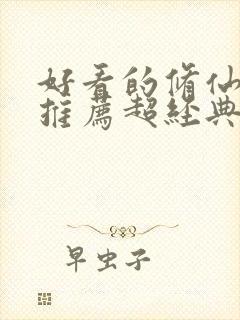 好看的脩仙
推薦超經典
早虫子